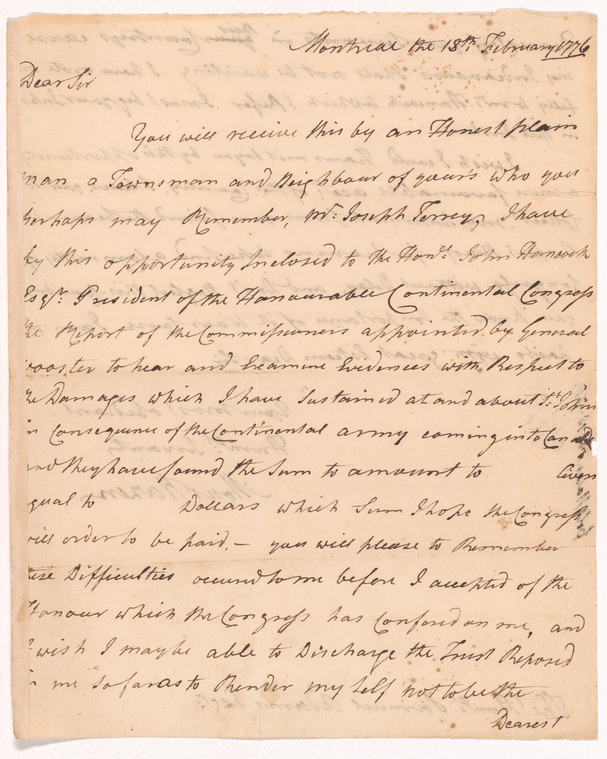 Montreal the 18th. February 1776
Dear Sir
You will receive this by an Honest plain
man a Townsman and Neighbour of yours who you
perhaps may Remember, Mr. Joseph Torrey, I have
by this opportunity Inclosed to the Hond. John Hancock
Esqr. President of the Honourable Continental Congress
the Report of the Commissioners appointed by General
Wooster to hear and Examine Evidences with Respect to
the Damages which I have Sustained at and about St. Johns
in Consequence of the Continental army coming into Canada
and they have found the Sum to amount to Livers
equal to Dollars which Sum I hope the Congress
will order to be paid, — you will please to Remember
these Difficulties occured to me before I accepted of the
Honour which the Congress has confered on me, and
I wish I may be able to Discharge the Trust Reposed
in me so far as to Render my self not to be the
Dearest